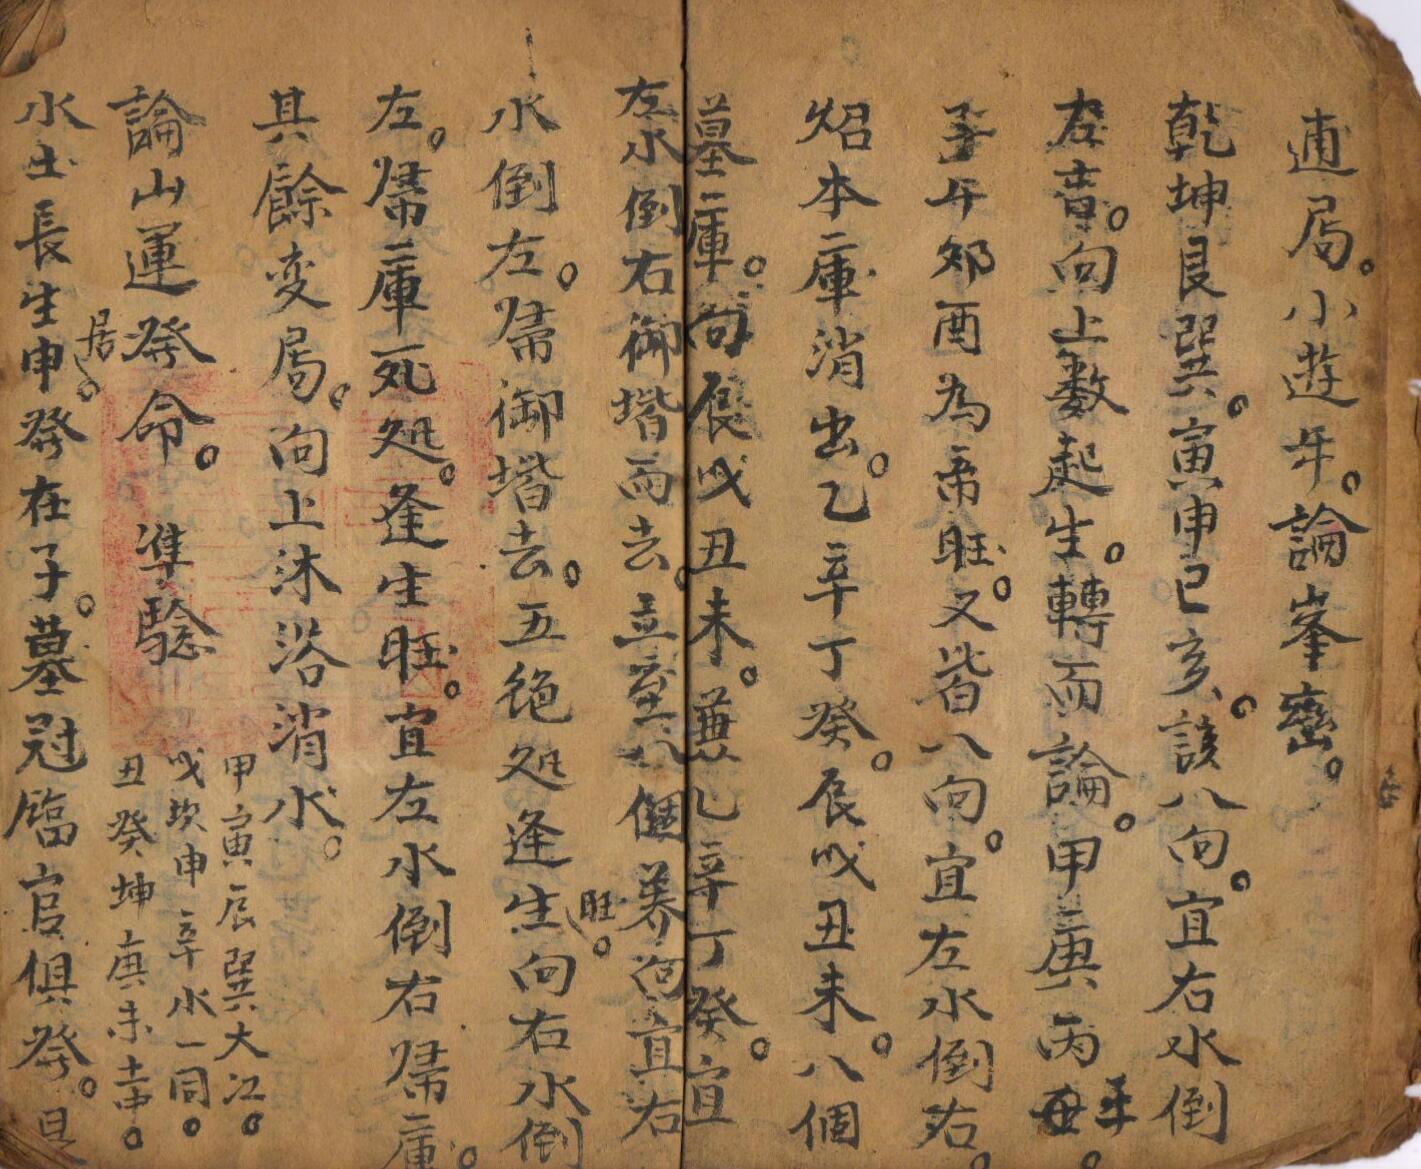 通局。小遊年。論峯巒。
乾坤艮巽。寅申巳亥。該八向。宜右水倒
左音。向上数起生。轉而論。甲庚丙
子午夘酉為帝旺。又皆八向。宜左水倒右。
炤本庫消出。乙辛丁癸。辰戌丑未。八個
墓庫。向辰戌丑未。兼乙辛丁癸。宜
左水倒右御堦而去。立至八個养向宜右
水倒左。帰御堦去。五絶処逢生向右水倒
旺。
左。帰庫死処。逢生旺。宜左水倒右帰庫。
其餘变局。向上沐浴消水。
甲寅辰巽大江。
戌坎申辛水一同。
丑癸坤庚未土中。
論山運發命。準驗
居。
水土長生申發在子。墓冠臨官俱發。